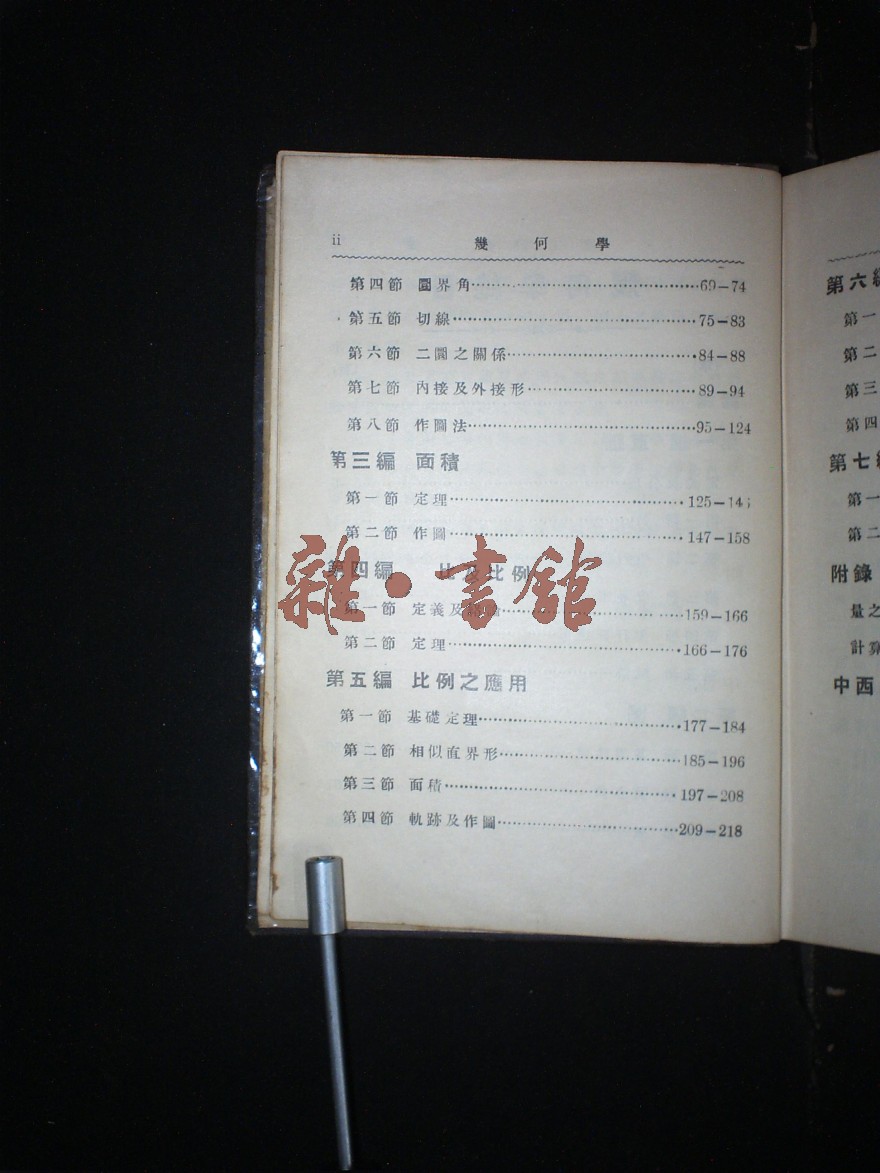 ii 幾何學
第四節 圓界角 69–74
第五節 切線 75–83
第六節 二圓之關係 84–88
第七節 內接及外接形 89–94
第八節 作圖法 95–124
第三編 面積
第一節 定理 125–14
第二節 作圖 147–158
第四編 比及比例
第一節 定義及 159–166
第二節 定理 166–176
第五編 比例之應用
第一節 基礎定理 177–184
第二節 相似直界形 185–196
第三節 面積 197–208
第四節 軌跡及作圖 209–218
雜·書館
第六編
第一
第二
第三
第四
第七編
第一
第二
附錄
量之
計算
中西